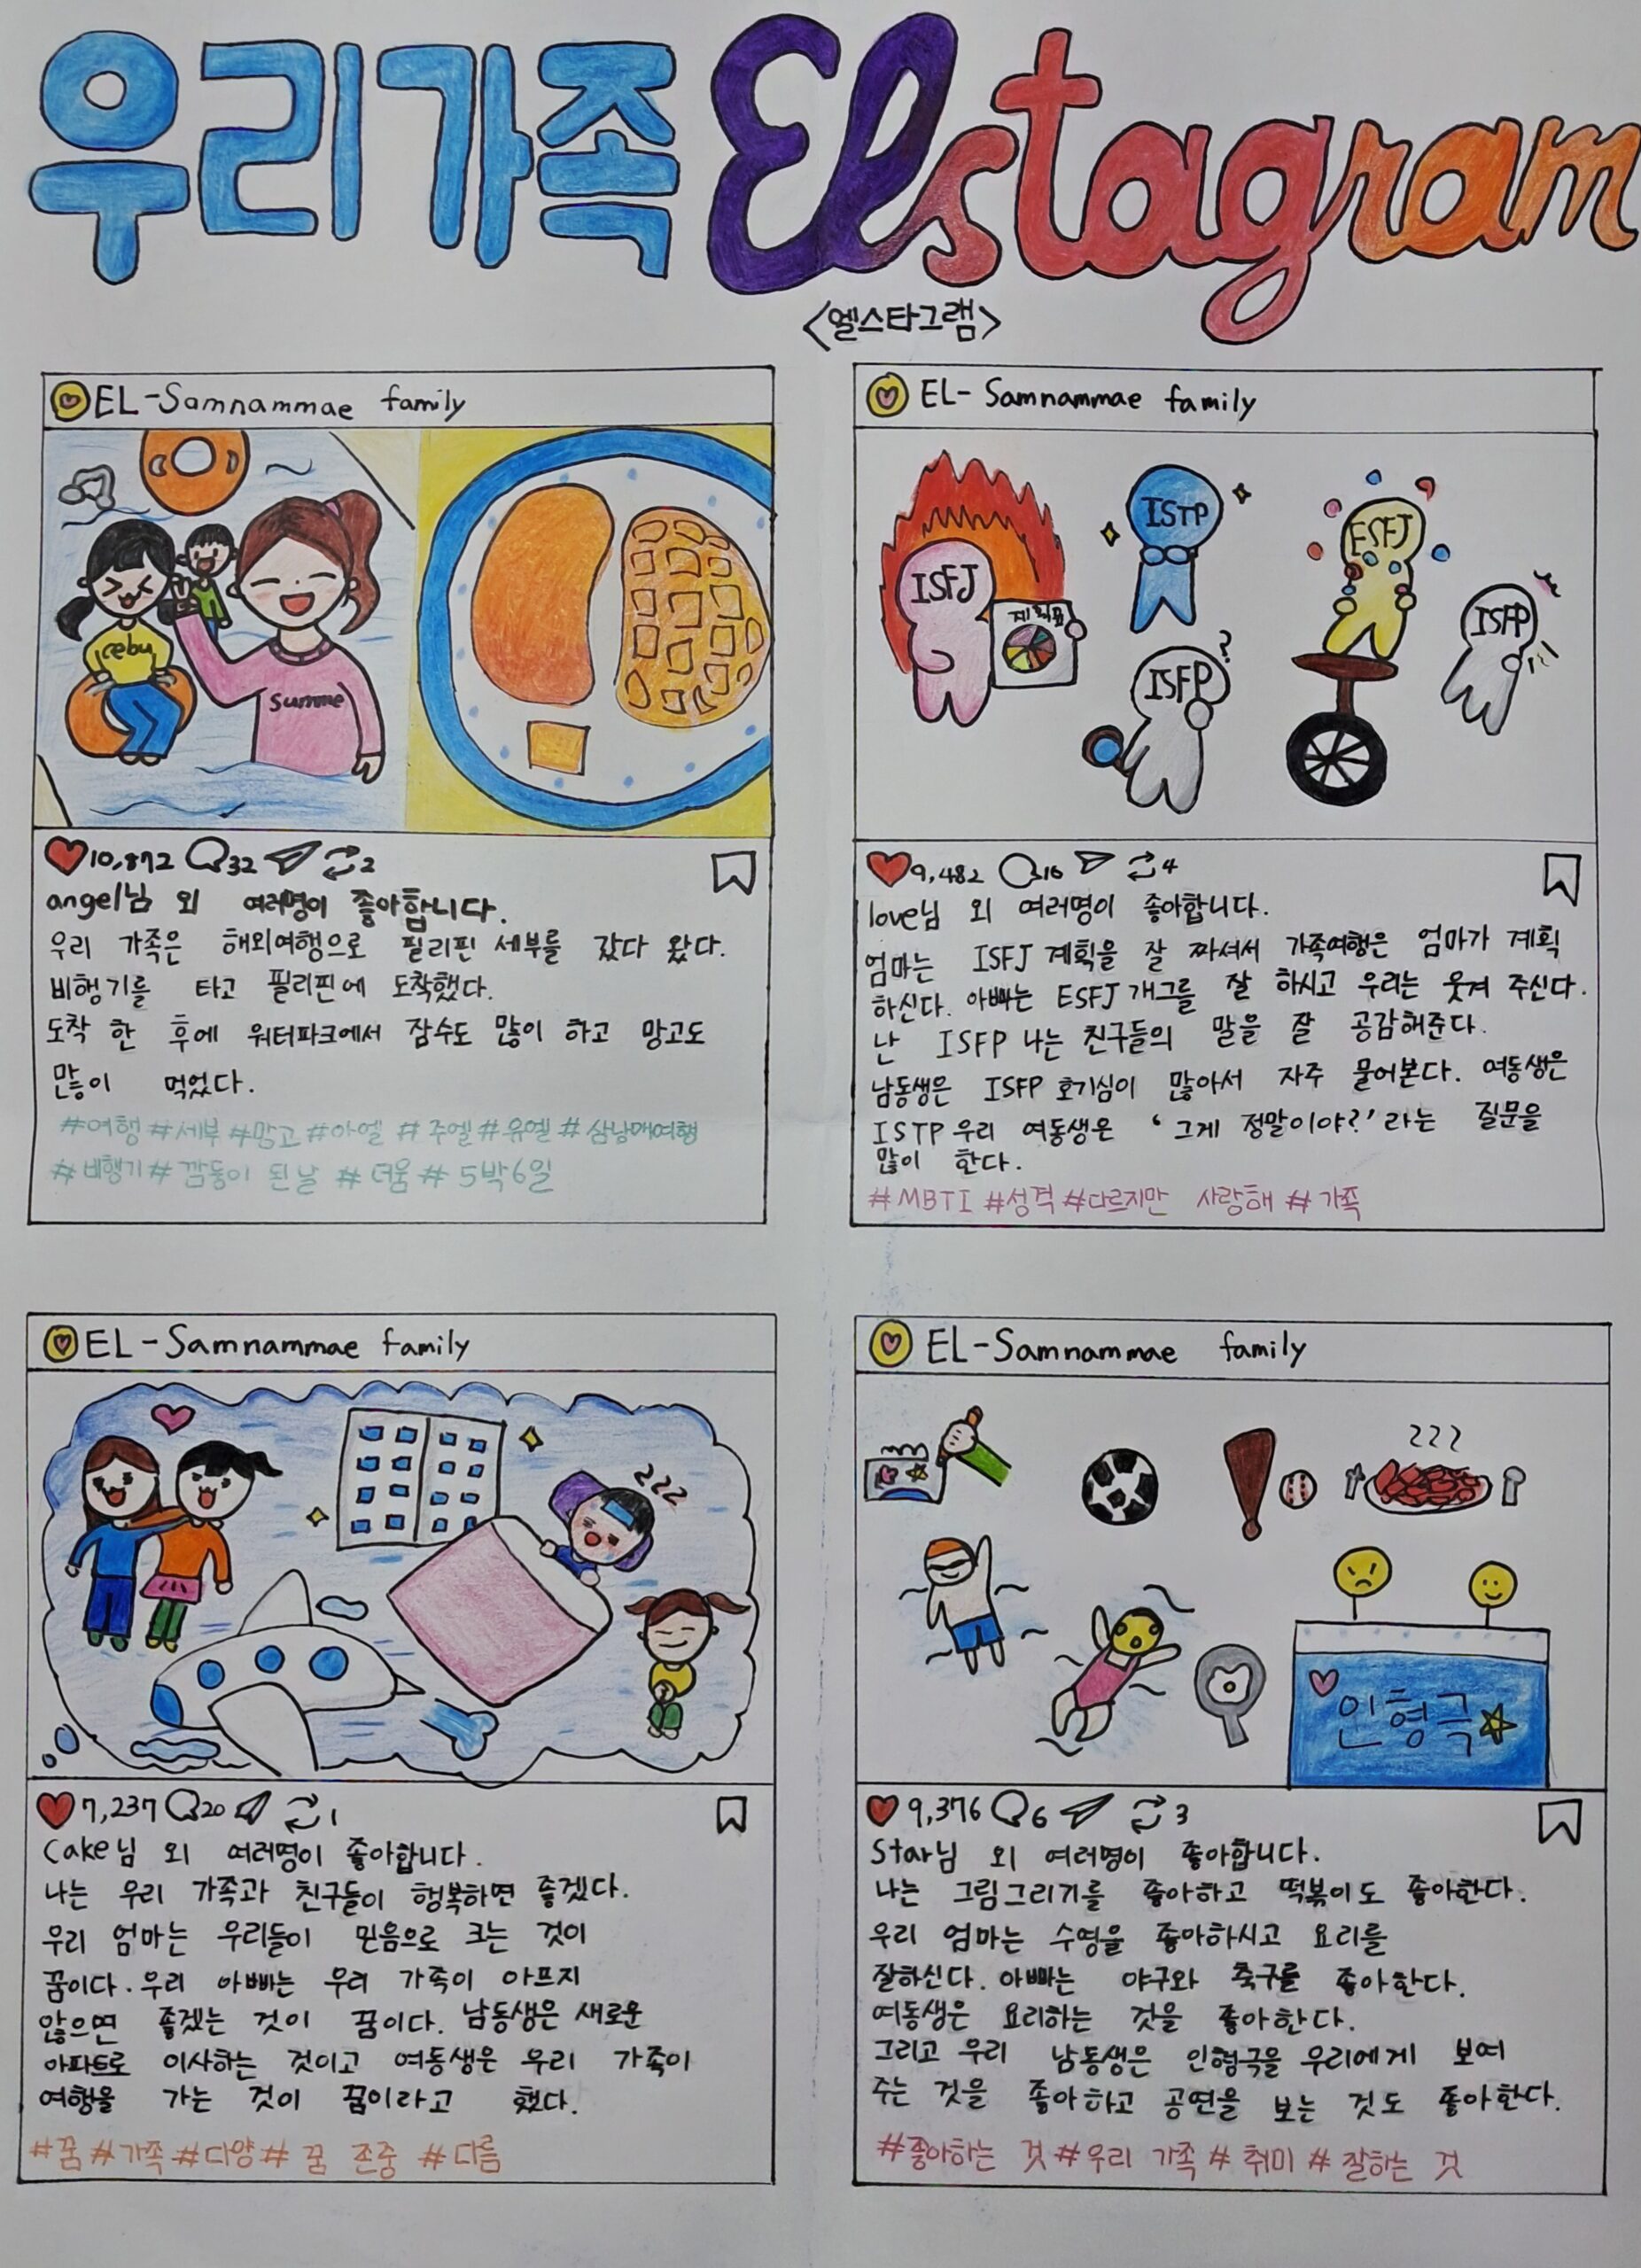 우리가족 Elstagram
<엘스타그램>
EL-Samnammae family
cebu
Summe
10,872 32 2
angel님 외 여러명이 좋아합니다.
우리 가족은 해외여행으로 필리핀 세부를 갔다 왔다.
비행기를 타고 필리핀에 도착했다.
도착 한 후에 워터파크에서 잠수도 많이 하고 망고도
많이 먹었다.
#여행 #세부 #망고 #아엘 # 주엘 # 유엘 # 삼남매여행
# 비행기 # 깜둥이 된 날 # 더움 # 5박6일
EL- Samnammae family
ISFJ
계획표
ISTP
ISFP
?
ESFJ
ISFP
9,482 16 4
love님 외 여러명이 좋아합니다.
엄마는 ISFJ 계획을 잘 짜셔서 가족여행은 엄마가 계획
하신다. 아빠는 ESFJ 개그를 잘 하시고 우리는 웃겨 주신다.
난 ISFP 나는 친구들의 말을 잘 공감해준다.
남동생은 ISFP 호기심이 많아서 자주 물어본다. 여동생은
ISTP 우리 여동생은 ‘그게 정말이야?’라는 질문을
많이 한다.
# MBTI #성격 #다르지만 사랑해 # 가족
EL-Samnammae family
zzz
7,237 20 1
Cake님 외 여러명이 좋아합니다.
나는 우리 가족과 친구들이 행복하면 좋겠다.
우리 엄마는 우리들이 믿음으로 크는 것이
꿈이다. 우리 아빠는 우리 가족이 아프지
않으면 좋겠는 것이 꿈이다. 남동생은 새로운
아파트로 이사하는 것이고 여동생은 우리 가족이
여행을 가는 것이 꿈이라고 했다.
#꿈 #가족 #다양 # 꿈 존중 #다름
EL-Samnammae family
인형극
9,376 6 3
Star님 외 여러명이 좋아합니다.
나는 그림그리기를 좋아하고 떡볶이도 좋아한다.
우리 엄마는 수영을 좋아하시고 요리를
잘하신다. 아빠는 야구와 축구를 좋아한다.
여동생은 요리하는 것을 좋아한다.
그리고 우리 남동생은 인형극을 우리에게 보여
주는 것을 좋아하고 공연을 보는 것도 좋아한다.
#좋아하는 것 #우리 가족 # 취미 # 잘하는 것